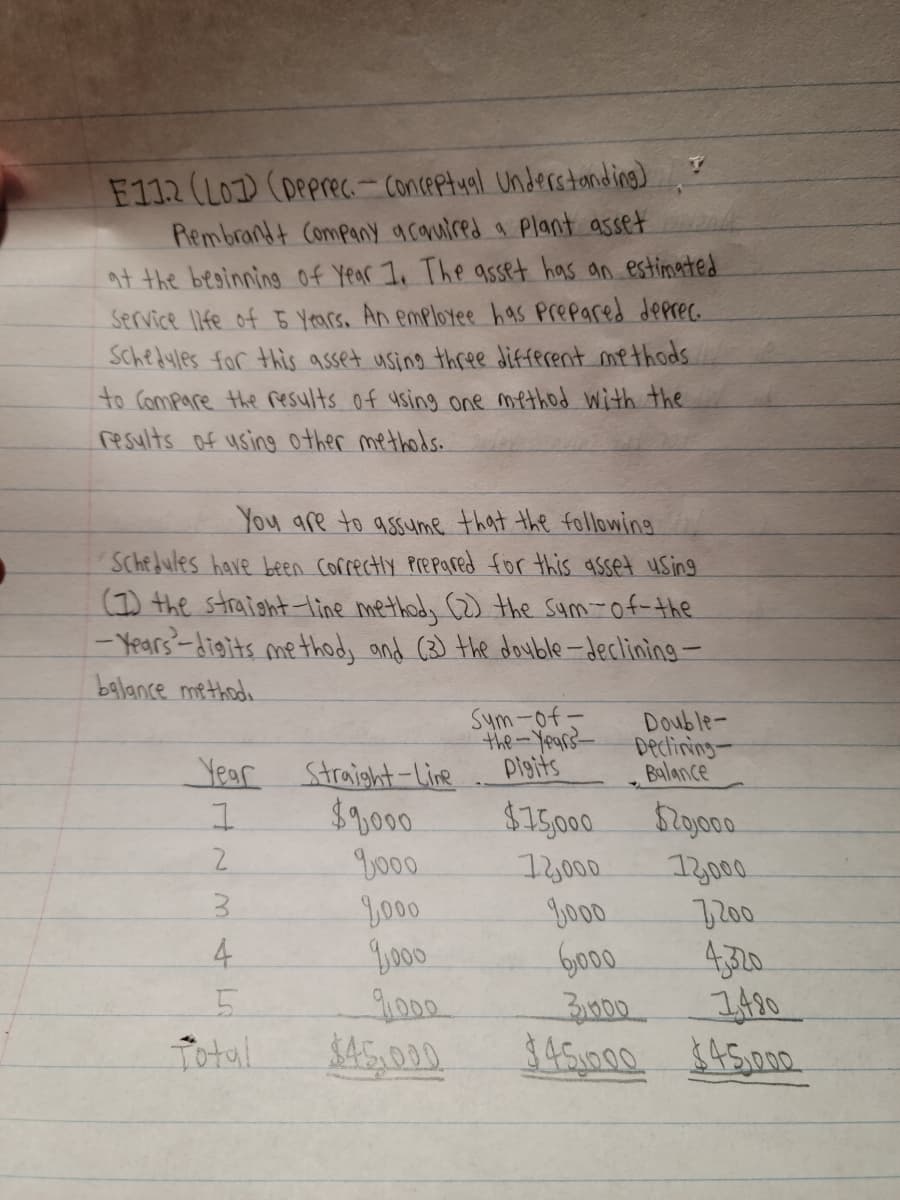 E11.2 (LO1) (Deprec. - Conceptual Understanding)
Rembrandt Company acquired a plant asset
at the beginning of Year 1. The asset has an estimated
service life of 5 years. An employee has prepared deprec.
schedules for this asset using three different methods
to compare the results of using one method with the
results of using other methods.
You are to assume that the following
schedules have been correctly prepared for this asset using
(1) the straight-line method, (2) the sum-of-the
-years'-digits method, and (3) the double-declining-
balance method.
Sum-of- Double-
the-Years'- Declining-
Year Straight-Line Digits Balance
1 $9,000 $15,000 $20,000
2 9,000 12,000 12,000
3 9,000 9,000 7,200
4 9,000 6,000 4,320
5 9,000 3,000 1,480
Total $45,000 $45,000 $45,000